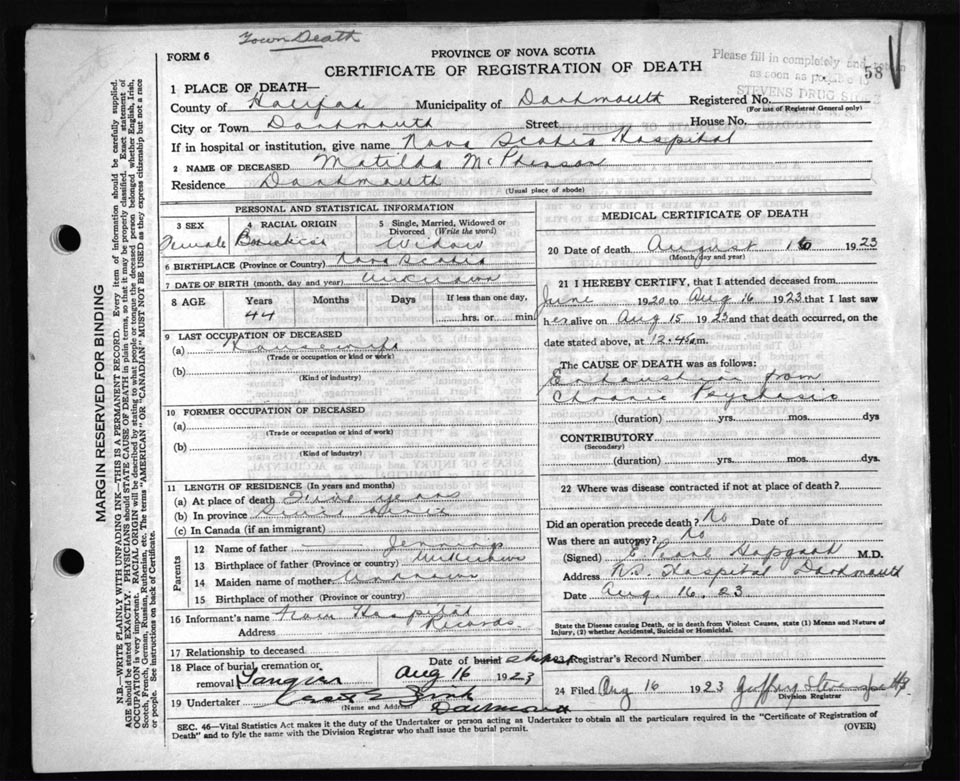 Town Death
FORM 6
PROVINCE OF NOVA SCOTIA
CERTIFICATE OF REGISTRATION OF DEATH
Please fill in completely and
as soon as
STEVENS DRUG
58
1 PLACE OF DEATH—
County of Halifax Municipality of Dartmouth Registered No.
(For use of Registrar General only)
City or Town Dartmouth Street House No.
If in hospital or institution, give name Nova Scotia Hospital
2 NAME OF DECEASED Matilda McPherson
Residence Dartmouth
(Usual place of abode)
PERSONAL AND STATISTICAL INFORMATION
3 SEX Female
4 RACIAL ORIGIN
5 Single, Married, Widowed or Divorced (Write the word) Widow
6 BIRTHPLACE (Province or Country) Nova Scotia
7 DATE OF BIRTH (month, day and year) Unknown
8 AGE Years Months Days If less than one day,
44 hrs. or min.
9 LAST OCCUPATION OF DECEASED
(a) Housewife
(Trade or occupation or kind or work)
(b)
(Kind of industry)
10 FORMER OCCUPATION OF DECEASED
(a)
(Trade or occupation or kind of work)
(b)
(Kind of industry)
11 LENGTH OF RESIDENCE (In years and months)
(a) At place of death years
(b) In province
(c) In Canada (if an immigrant)
Parents
12 Name of father Jennings
13 Birthplace of father (Province or country) Unknown
14 Maiden name of mother Unknown
15 Birthplace of mother (Province or country)
16 Informant's name From Hospital
Address Records.
17 Relationship to deceased
18 Place of burial, cremation or
removal Tangier
Date of burial
Aug 16 1923
19 Undertaker
(Name and Address) Dartmouth
MEDICAL CERTIFICATE OF DEATH
20 Date of death August 16 1923
(Month, day and year)
21 I HEREBY CERTIFY, that I attended deceased from
June 1920 to Aug 16 1923 that I last saw
her alive on Aug 15 1923 and that death occurred, on
date stated above, at 12.45 a.m.
The CAUSE OF DEATH was as follows:
Exhaustion from
Chronic Psychosis
(duration) yrs. mos. dys
CONTRIBUTORY
(Secondary)
(duration) yrs. mos. dys.
22 Where was disease contracted if not at place of death?
Did an operation precede death? No Date of
Was there an autopsy? No
(Signed) E. Pearl Hopgood M.D.
Address N.S. Hospital Dartmouth
Date Aug. 16. 23
State the Disease causing Death, or in death from Violent Causes, state (1) Means and Nature of
Injury, (2) whether Accidental, Suicidal or Homicidal.
23 Registrar's Record Number
24 Filed Aug 16 1923
Division Registrar
SEC. 46—Vital Statistics Act makes it the duty of the Undertaker or person acting as Undertaker to obtain all the particulars required in the "Certificate of Registration of
Death" and to fyle the same with the Division Registrar who shall issue the burial permit. (OVER)
MARGIN RESERVED FOR BINDING
N.B.—WRITE PLAINLY WITH UNFADING INK—THIS IS A PERMANENT RECORD. Every item of information should be carefully supplied.
AGE should be stated EXACTLY. PHYSICIANS should STATE CAUSE OF DEATH in plain terms, so that it may be properly classified. Exact statement of
OCCUPATION is very important. RACIAL ORIGIN will be described by stating to what people or tongue the deceased person belonged whether English, Irish,
Scotch, French, German, Russian, Ruthenian, etc. The terms "AMERICAN" or "CANADIAN" MUST NOT BE USED as they express citizenship but not a race
or people. See instructions on back of Certificate.